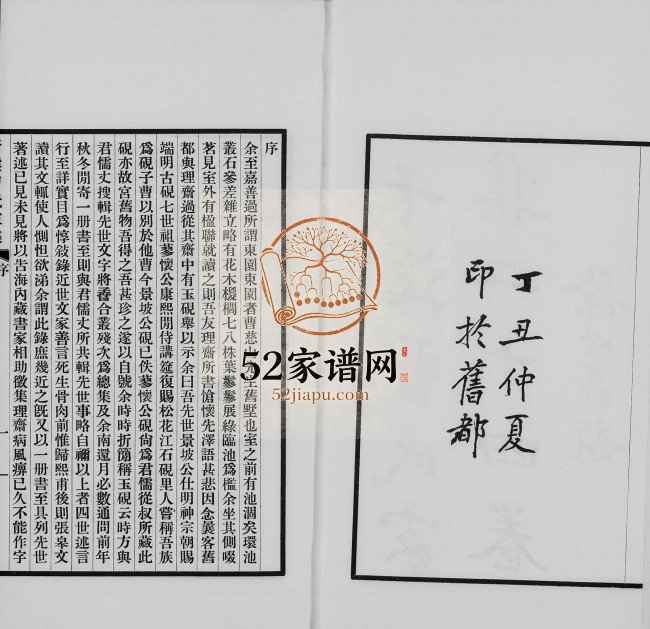 丁丑仲夏
印於舊都
序
余至嘉善過所謂東園東園者曹慈山先生舊墅也室之前有池涸矣環池
叢石參差雜立略有花木椶櫚七八株葉鬖鬖展綠臨池爲檻余坐其側啜
茗見室外有楹聯就讀之則吾友理齋所書愴懷先澤語甚悲因念曩客舊
都與理齋過從其齋中有玉硯舉以示余曰吾先世景坡公仕明神宗朝賜
端明古硯七世祖蓼懷公康熙閒侍講筵復賜松花江石硯里人嘗稱吾族
爲硯子曹以別於他曹今景坡公硯已佚蓼懷公硯尙爲君儒從叔所藏此
硯亦故宮舊物吾得之吾甚珍之遂以自號余時時折簡稱玉硯云時方與
君儒丈搜輯先世文字將薈合叢殘次爲總集及余南還月必數通問前年
秋冬閒寄一册書至則與君儒丈所共輯先世事略自禰以上者四世述言
行至詳實目爲惇敍錄近世文家善言死生骨肉前惟歸熙甫後則張皋文
讀其文輒使人惻怛欲涕余謂此錄庶幾近之旣又以一册書至具列先世
著述已見未見將以告海內藏書家相助徵集理齋病風痹已久不能作字
序
一
52家谱网
52jiapu.com